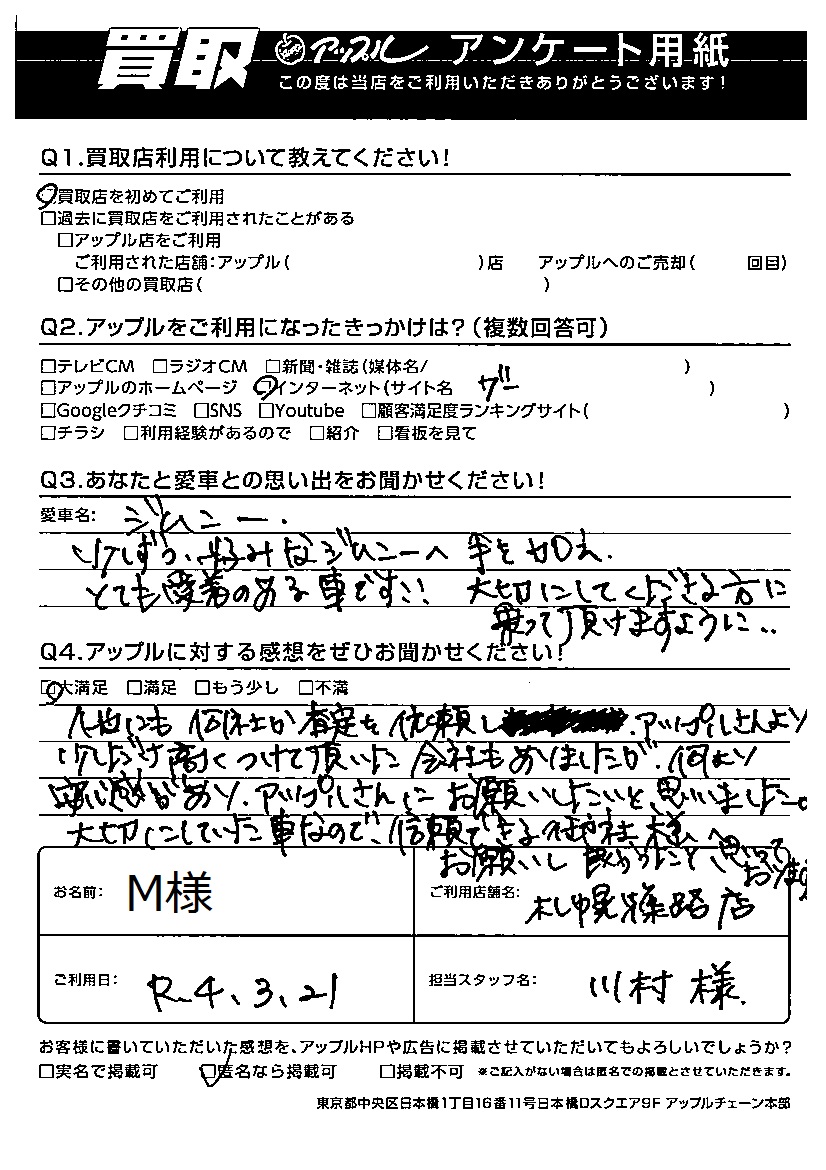 買取 アップル アンケート用紙
この度は当店をご利用いただきありがとうございます!
Q1.買取店利用について教えてください!
□買取店を初めてご利用
□過去に買取店をご利用されたことがある
□アップル店をご利用
ご利用された店舗:アップル( )店 アップルへのご売却( 回目)
□その他の買取店( )
Q2.アップルをご利用になったきっかけは?(複数回答可)
□テレビCM □ラジオCM □新聞・雑誌(媒体名/ )
□アップルのホームページ □インターネット(サイト名 グー )
□Googleクチコミ □SNS □Youtube □顧客満足度ランキングサイト( )
□チラシ □利用経験があるので □紹介 □看板を見て
Q3.あなたと愛車との思い出をお聞かせください!
愛車名: ジムニー.
少しずつ、好みなジムニーへ 手を加え.
とても愛着のある車です!! 大切にしてくださる方に
乗って頂けますように..
Q4.アップルに対する感想をぜひお聞かせください!
□大満足 □満足 □もう少し □不満
他にも 何社か査定を依頼し アップルさんより
少しだけ高くつけて頂いた会社もありましたが、何より
安心感があり、アップルさんにお願いしたいと思いました。
大切にしていた車なので、信頼できる 様へ
お願いし たいと思って
おります
お名前: M様
ご利用店舗名: 札幌篠路店
ご利用日: R.4.3.21
担当スタッフ名: 川村様
お客様に書いていただいた感想を、アップルHPや広告に掲載させていただいてもよろしいでしょうか?
□実名で掲載可 □匿名なら掲載可 □掲載不可 ※ご記入がない場合は匿名での掲載とさせていただきます。
東京都中央区日本橋1丁目16番11号日本橋Dスクエア9F アップルチェーン本部